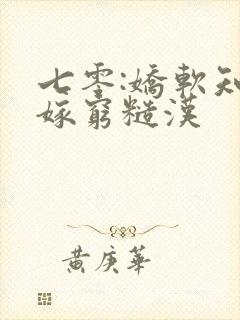 七零:嬌軟知
嫁窮糙漢
黃庚華